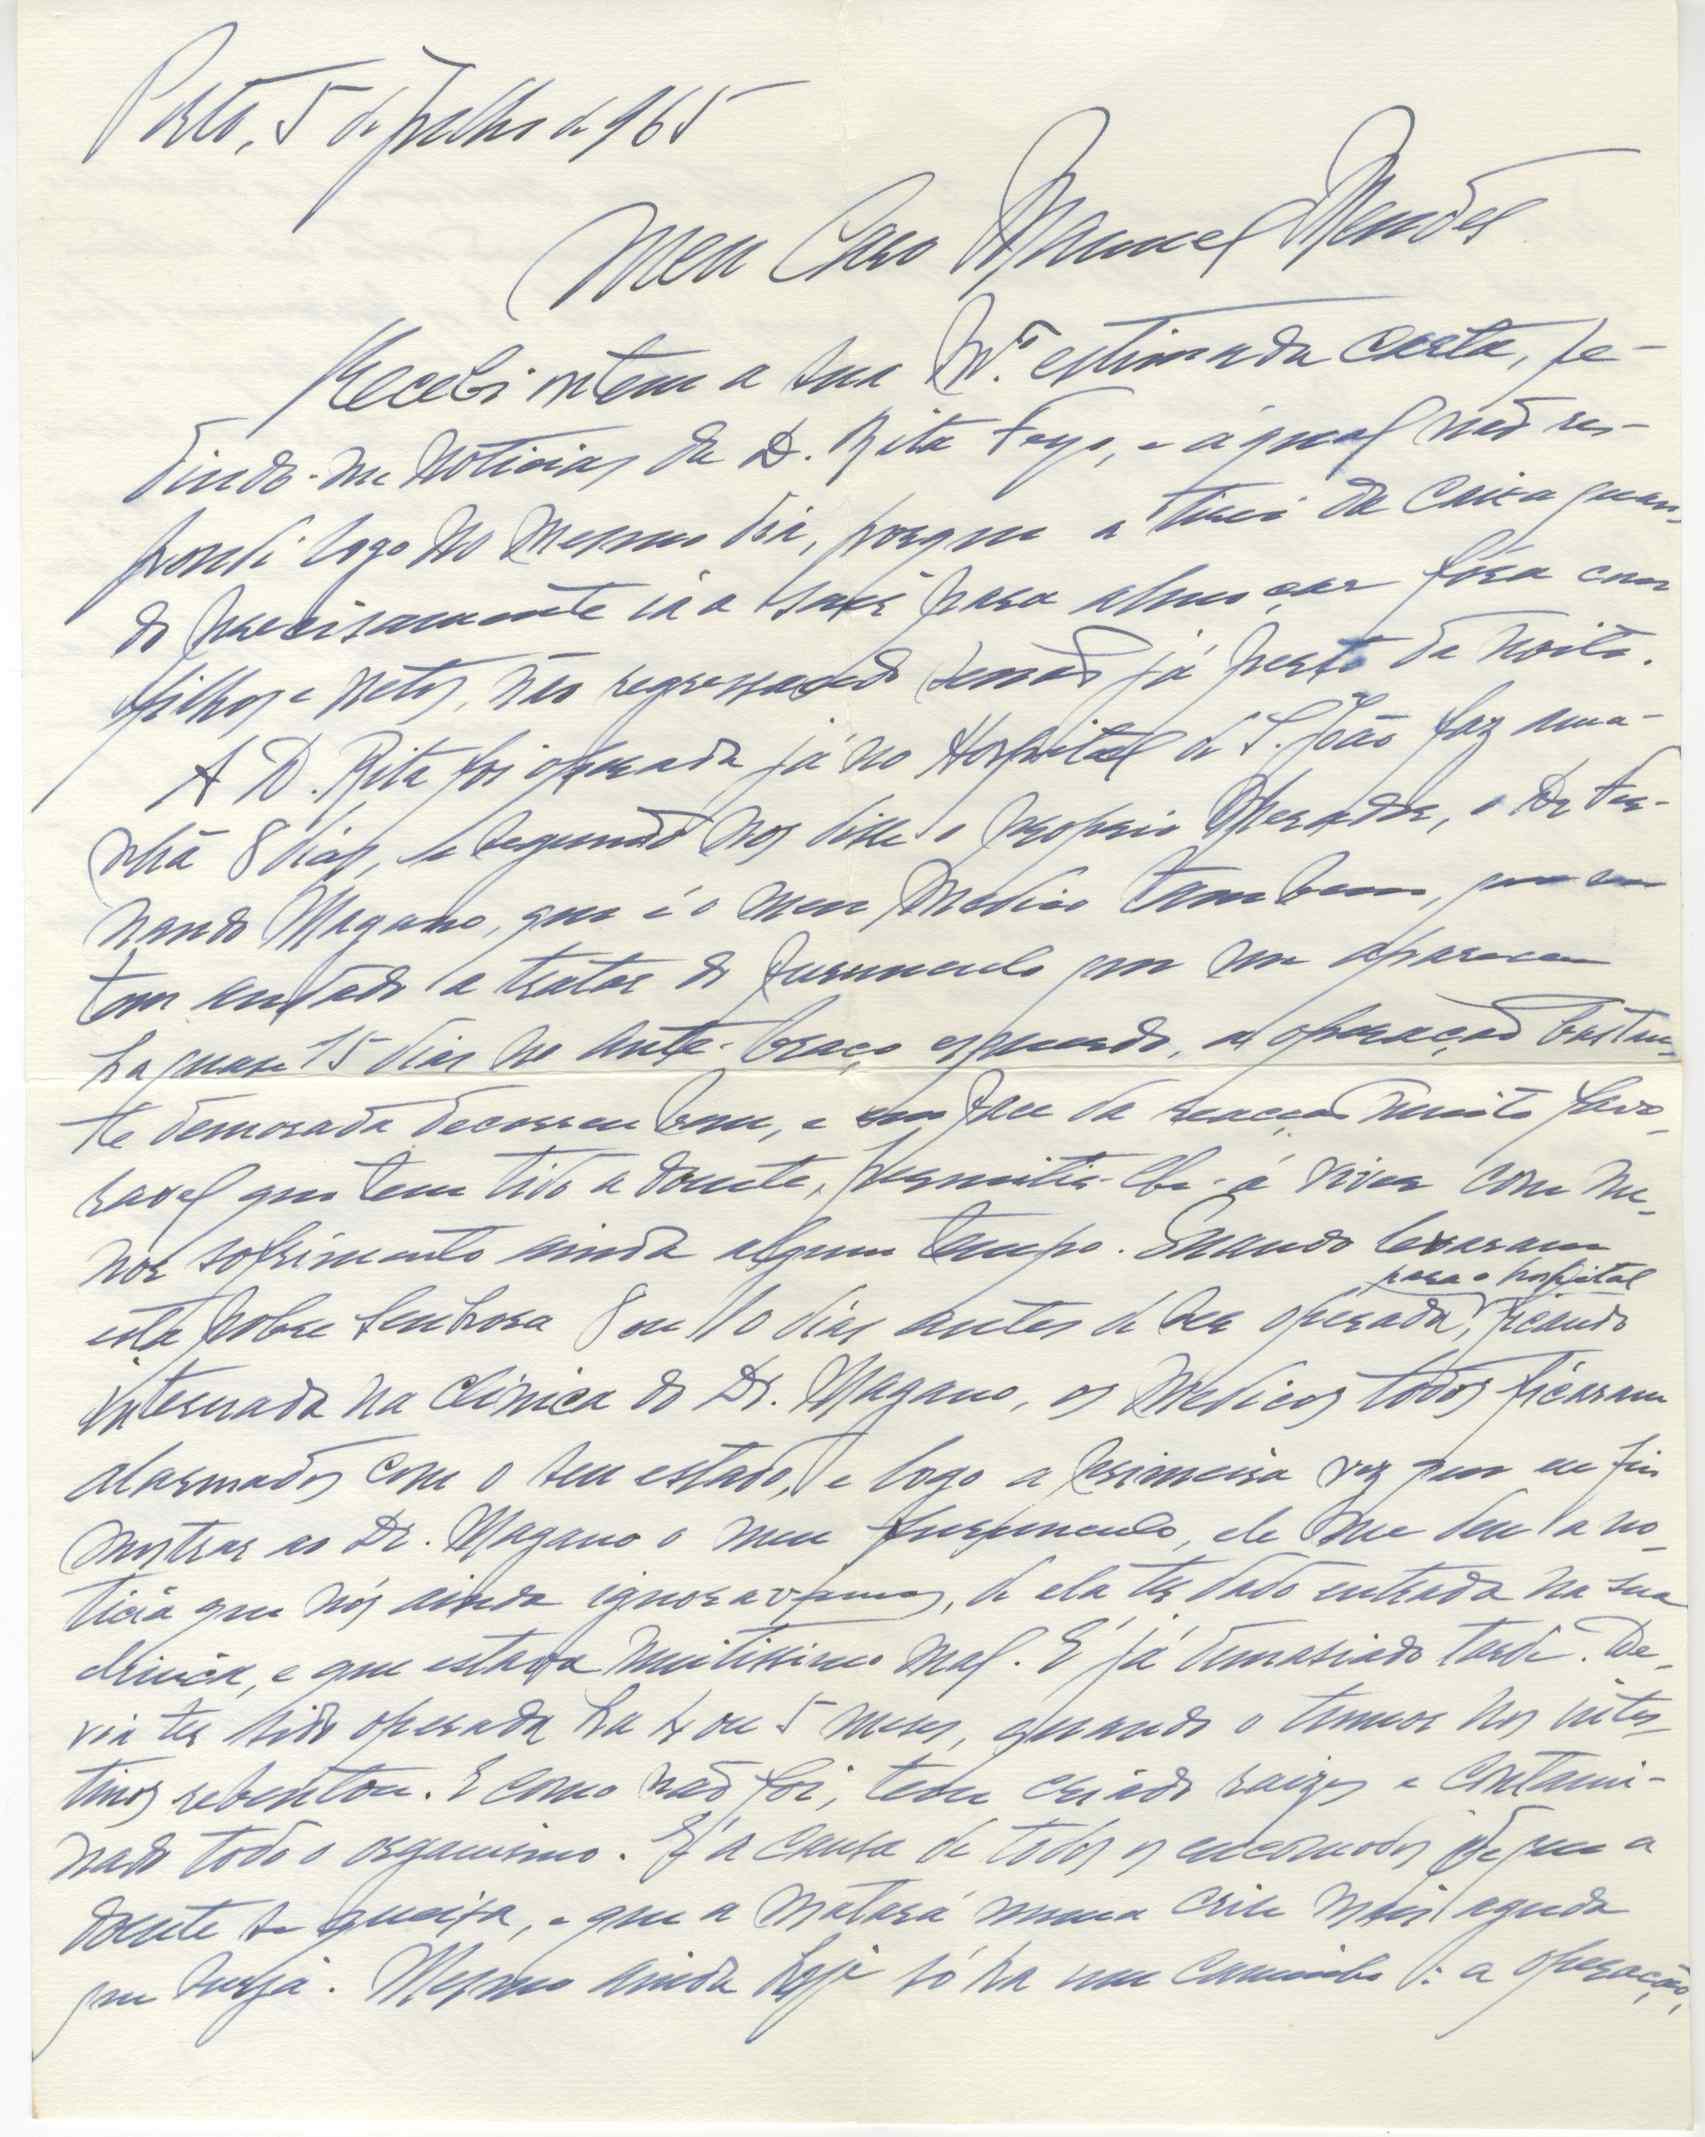 Porto, 5 de Julho de 965
Meu Caro Manuel Mendes
Recebi ontem a sua M.to estimada carta, pe-
dindo-me noticias da D. Rita Feyo, e á qual não res-
pondi logo no mesmo dia, porque a tirei da caixa quan-
do precisamente ía a sair para almoçar fóra com
filhos e netos, não regressando senão já perto da noite.
A D. Rita foi operada já no Hospital de S. João faz ama-
nhã 8 dias, e segundo nos disse o proprio Operador, o Dr Fer-
nando Magano, que é o meu Medico tambem, que me
tem andado a tratar do furunculo que me apareceu
ha quase 15 dias no ante-braço esquerdo, a operação bastan-
te demorada decorreu bem, e em face da reacção muito favo-
ravel que tem tido a doente, permitir-lhe-á viver com me-
nor sofrimento ainda algum tempo. Quando levaram
para o hospital
esta pobre Senhora 8 ou 10 dias antes de ser operada, ficando
internada na clinica do Dr. Magano, os medicos todos ficaram
alarmados com o seu estado, e logo a primeira vez que eu fui
mostrar ao Dr. Magano o meu furunculo, ele me deu a no-
ticia que nós ainda ignoravamos, de ela ter dado entrada na sua
clinica, e que estava muitissimo mal. É já demasiado tarde. De-
via ter sido operada ha 4 ou 5 meses, quando o tumor nos intes-
tinos rebentou. E como não foi, tem criado raizes e contami-
nado todo o organismo. É a causa de todos os encomodos de que a
doente se queixa, e que a matará numa crise mais aguda
que surja. Mesmo ainda hoje só ha um caminho: a operação,